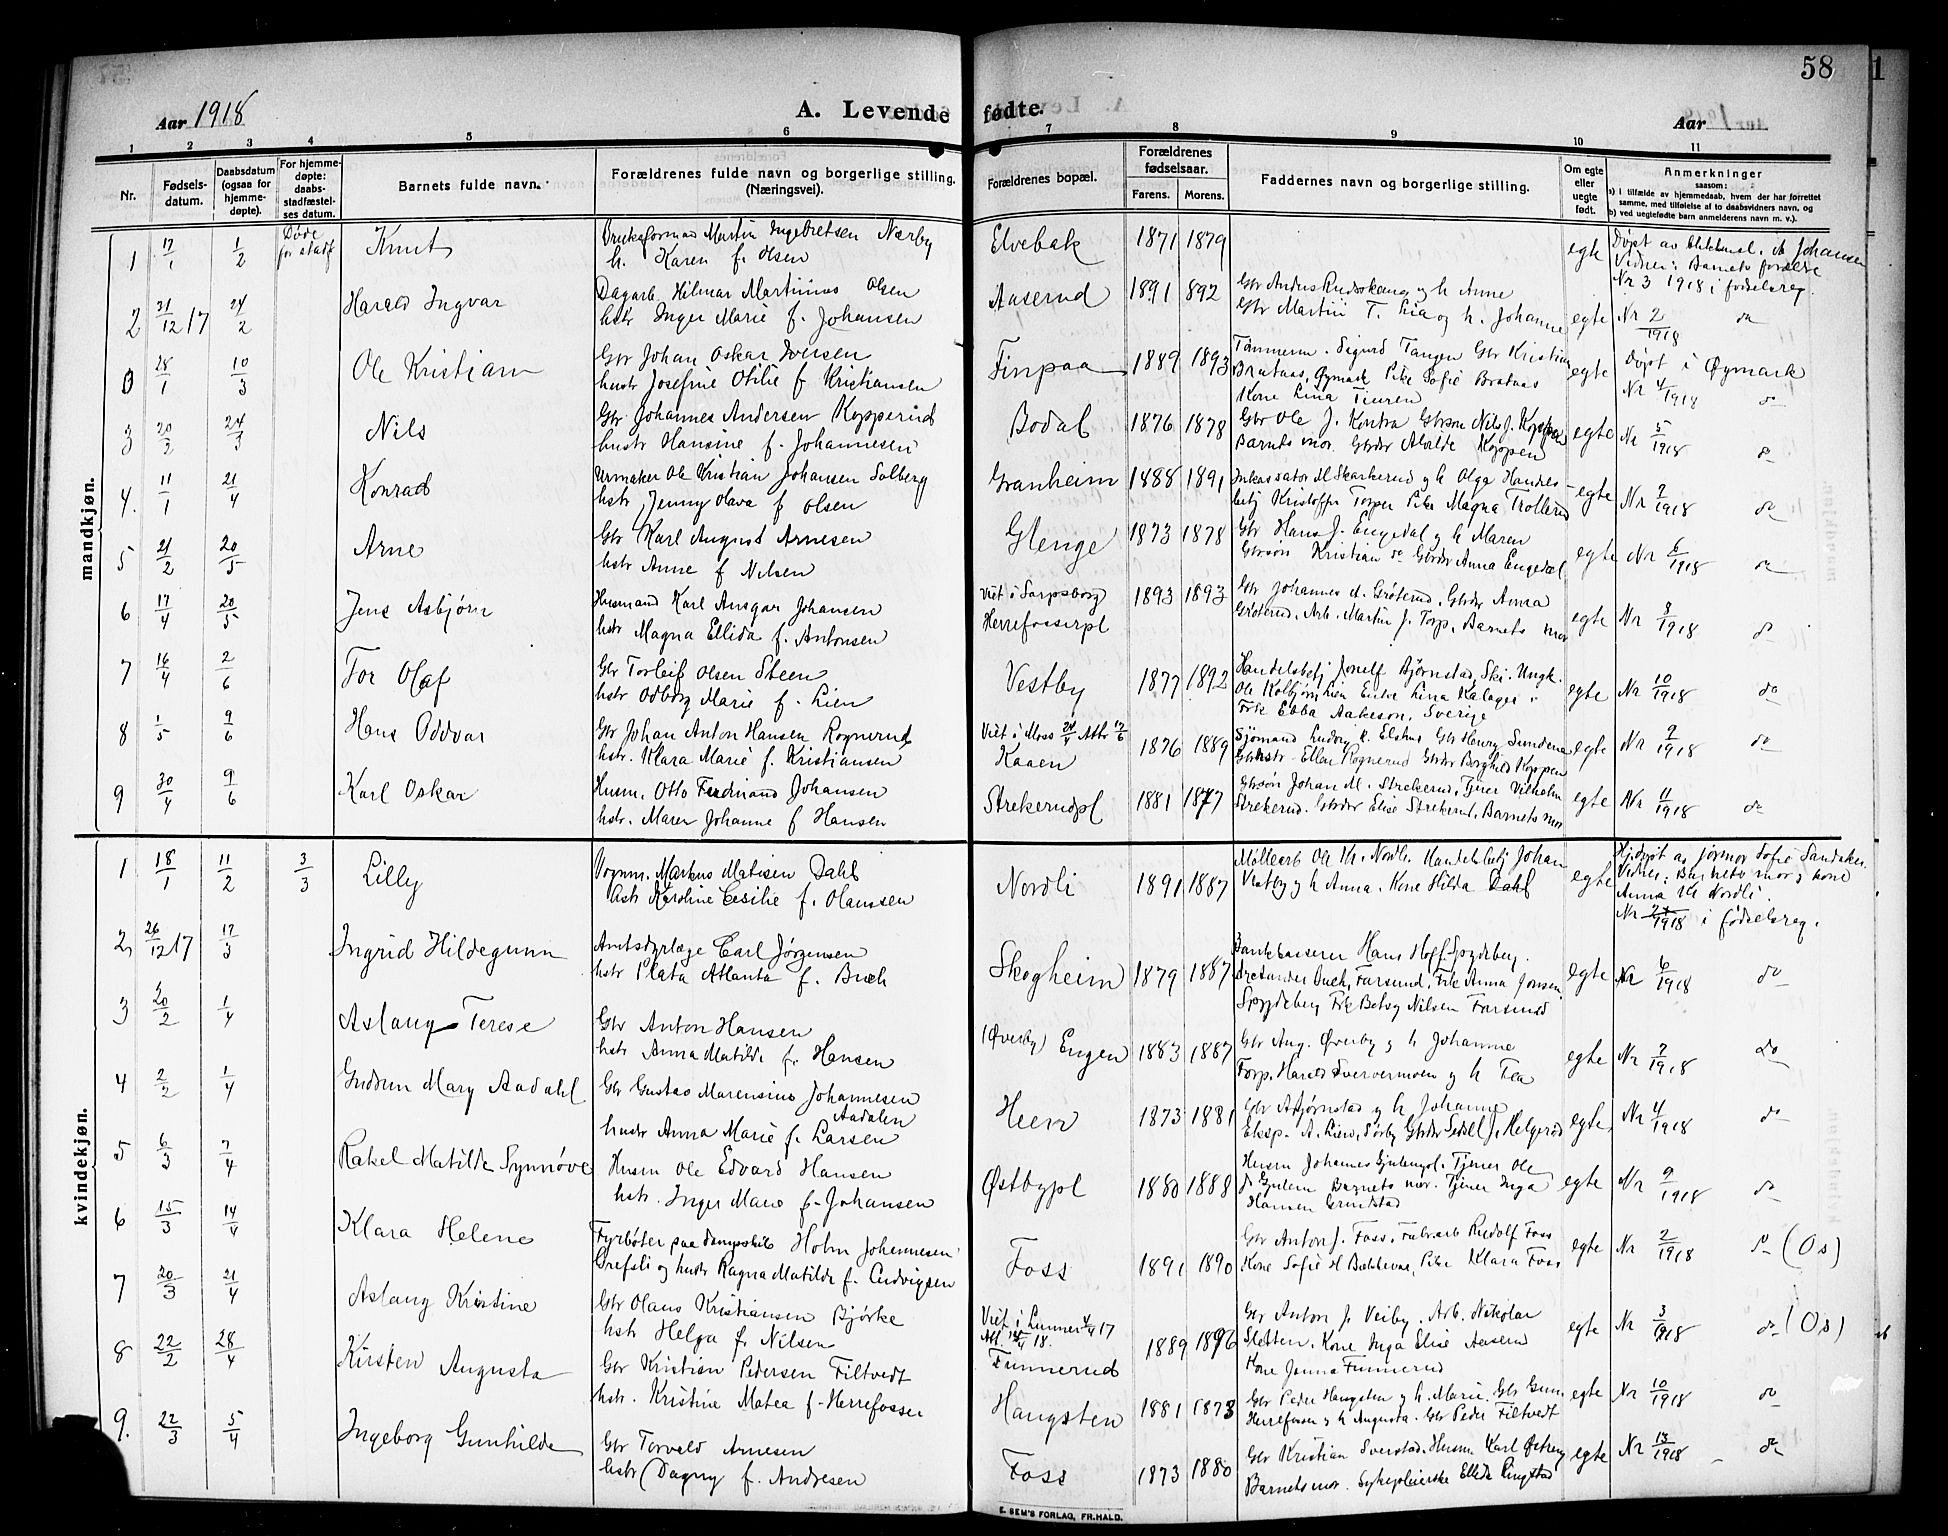 58
Aar 1918
A. Levende fødte.
Aar
1 2 3 4 5 6 7 8 9 10 11
Nr.
Fødsels-datum.
Daabsdatum (ogsaa for hjemme-døpte).
For hjemme-døpte: daabs-stadfæstel-ses datum.
Barnets fulde navn.
Forældrenes fulde navn og borgerlige stilling. (Næringsvei).
Forældrenes bopæl.
Forældrenes fødselsaar.
Farens. Morens.
Faddernes navn og borgerlige stilling.
Om egte eller uegte født.
Anmerkninger
saasom:
a) i tilfælde av hjemmedaab, hvem der har forrettet samme, med tilføielse af to daabsvidners navn, og
b) ved uegtefødte barn anmelderens navn m. v.).
mandkjøn.
1 17/1 1/2 Døde før stadf Knut
Martin Ingebretsen Nærby
h. Karen f. Olsen
Elvebak 1871 1879 egte
Døpt av A Johansen
Vidner: Barnets forældre
Nr 3 1918 i fødselsreg.
2 31/12 17 24/2 Harald Ingvar
Dagarb. Hilmar Martinius Olsen
hstr Inger Marie f. Johansen
Aaserud 1891 892
og h Anne
Gbr Martin T. Lia og h. Johanne
egte Nr 2/1918 do
28/1 10/3 Ole Kristian
Gbr Johan Oskar Iversen
hustr Josefine Otilie f Kristiansen
Finpaa 1889 1893
Sigurd Tangen Gbr Kristian
Brataas, Øymark Pike Sofie Brataas
Kone Lina
egte Døpt i Øymark
Nr 4/1918 do
3 20/2 24/3 Nils
Gbr. Johannes Andersen Kopperud
hustr Hansine f. Johannesen
Bodal 1876 1878
Gbr Ole J. Kontra Gbrsøn Nils J.
Barnets mor. Gbrdtr Koppen
egte Nr 5/1918 do
4. 11/1 21/4 Konrad
Urmaker Ole Kristian Johansen Solberg
hstr. Jenny Olava f Olsen
Granheim 1888 1891
Inkassator Skarkerud og h Olga
Kristoffer Torper Pike Magna Trollerud
egte Nr 7/1918 do
5 21/2 20/5 Arne
Gbr Karl August Arnesen
hstr Anne f Nilsen
Glenge 1873 1878
Gbr Hans J. Engedal og h Maren
Gbrsøn Kristian do Gbrdtr Anna Engedal
egte Nr 6/1918 do
6 17/4 20/5 Jens Asbjørn
Husmand Karl Ansgar Johansen
hstr Magna Ellida f. Antonsen
Viet i Sarpsborg
Herrefosserpl 1893 1893
Gbr Johannes A. Grøterud, Gbrdtr Anna
Grøterud, Arb. Martin J. Torp, Barnets mor
egte Nr 8/1918 do
7 16/4 2/6 Tor Olaf
Gbr Torleif Olsen Steen
hstr Odborg Marie f. Lien
Vestby 1877 1892
Bjørnstad, Ski. Ungk.
Ole Kolbjørn Lien Enke Lina
Frk Ebba Aakeson, Sverige
egte Nr 10/1918 do
8 1/5 9/6 Hans Oddvar
Gbr Johan Anton Hansen Rognerud
hstr. Klara Marie f. Kristiansen
Viet i Moss
Kaaen 1876 1889
Sjømand Ludvig Gbr Henry Sundene
Ellen Rognerud Gbrdtr Borghild Koppen
egte Nr 9/1918 do
9 30/4 9/6 Karl Oskar
Husm. Otto Ferdinand Johansen
hstr. Maren Johanne f Hansen
Strekerudpl 1881 1877
Gbrsøn Johan M. Strekerud, Tjener Vilhelm
Strekerud. Gbrdtr Elise Strekerud, Barnets mor
egte Nr 11/1918 do
kvindekjøn.
1 18/1 11/2 3/3 Lilly
Vognm. Markus Matisen Dahl
hstr Karoline Cesilie f. Olaussen
Nordli 1891 1887
Møllearb Ole Kr. Nordli. Handelsbetj Johan
Vestby og h Anna. Kone Hilda Dahl
egte
Hjdøpt av jormor Sofie Sandaker
Vidner: Barnets mor og kone
Anna Kr Nordli.
Nr /1918 i fødselsreg.
2 26/12 17 17/3 Ingrid Hildegunn
Amtsdyrlæge Carl Jørgensen
hstr Plata Atlanta f. Buch
Skogheim 1879 1887
Bankkasserer Hans Spydeberg.
Buch, Farsund, Frk Anna Jonsen
Spydeberg Frk Betsy Nilsen Farsund
egte Nr 6/1918 do
3 20/2 1/4 Aslaug Terese
Gbr Anton Hansen
hstr Anna Matilde f. Hansen
(Øverby) Engen 1883 1887
Gbr Aug. Øverby og h Johanne
Torp. Harald og h Tea
egte Nr 7/1918 do
4 2/2 1/4 Gudrun Mary Aadahl
Gbr Gustav Marensius Johannesen Aadalen
hustr Anna Marie f. Larsen
Heen 1873 1881
Gbr A Bjørnstad og h Johanne
Eksp. A. Lien, Sørby Gbrdtr J. Helgerød
egte Nr 4/1918 do
5 6/3 7/4 Rakel Matilde Synnøve
Husm Ole Edvard Hansen
hstr. Inger Marie f. Johansen
Østbypl 1880 1888
Husm Johannes Tjener Ole
Barnets mor. Tjener Inga
Hansen Grindstad
egte Nr 9/1918 do
6 15/3 14/4 Klara Helene
Fyrbøter paa dampskib Holm Johannesen
Grefsli og hustr Ragna Matilde f. Ludvigsen
Foss 1891 1890
Gbr Anton J. Foss. Fabr.arb Rudolf Foss
Kone Sofie Pike Klara Foss
egte Nr 2/1918 do (Os)
7 20/3 21/4 Aslaug Kristine
Gbr Olaus Kristiansen Bjørke
hstr Helga f. Nilsen
Viet i Lunner 17
Finnerud 1889 1896
Gbr Anton J. Veiby. Arb. Nikolai
Sletten. Kone Inga Elise Aaserud
Kone Jenna Finnerud
egte Nr 3/1918 do (Os)
8 22/2 28/4 Kirsten Augusta
Gbr Kristian Pedersen Filtvedt
hstr. Kristine Matea f. Herrefosser
Haugsten 1881 1873
Gbr Peder Haugsten og h. Marie. Gbr
Herrefossen og h Augusta. Gbr Peder Filtvedt
egte Nr 10/1918 do
9. 22/3 5/4 Ingeborg Gunhilde
Gbr Torvald Arnesen
hstr Dagny f. Andresen
Foss 1873 1880
Gbr Kristian Sverstad. Husm Karl Østreng
Barnets mor. Sykepleierske Ellida Ringstad
egte Nr 13/1918 do
E. SEM'S FORLAG, FR.HALD.